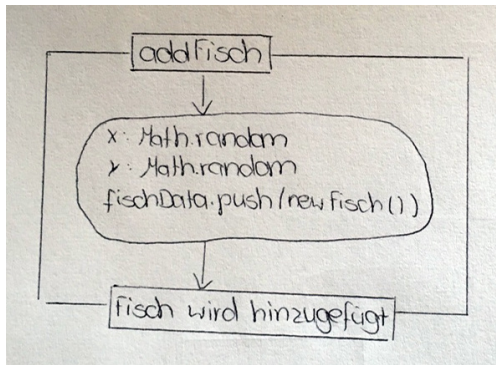 addFisch
x: Math.random
y: Math.random
fischData.push(newFisch())
Fisch wird hinzugefügt